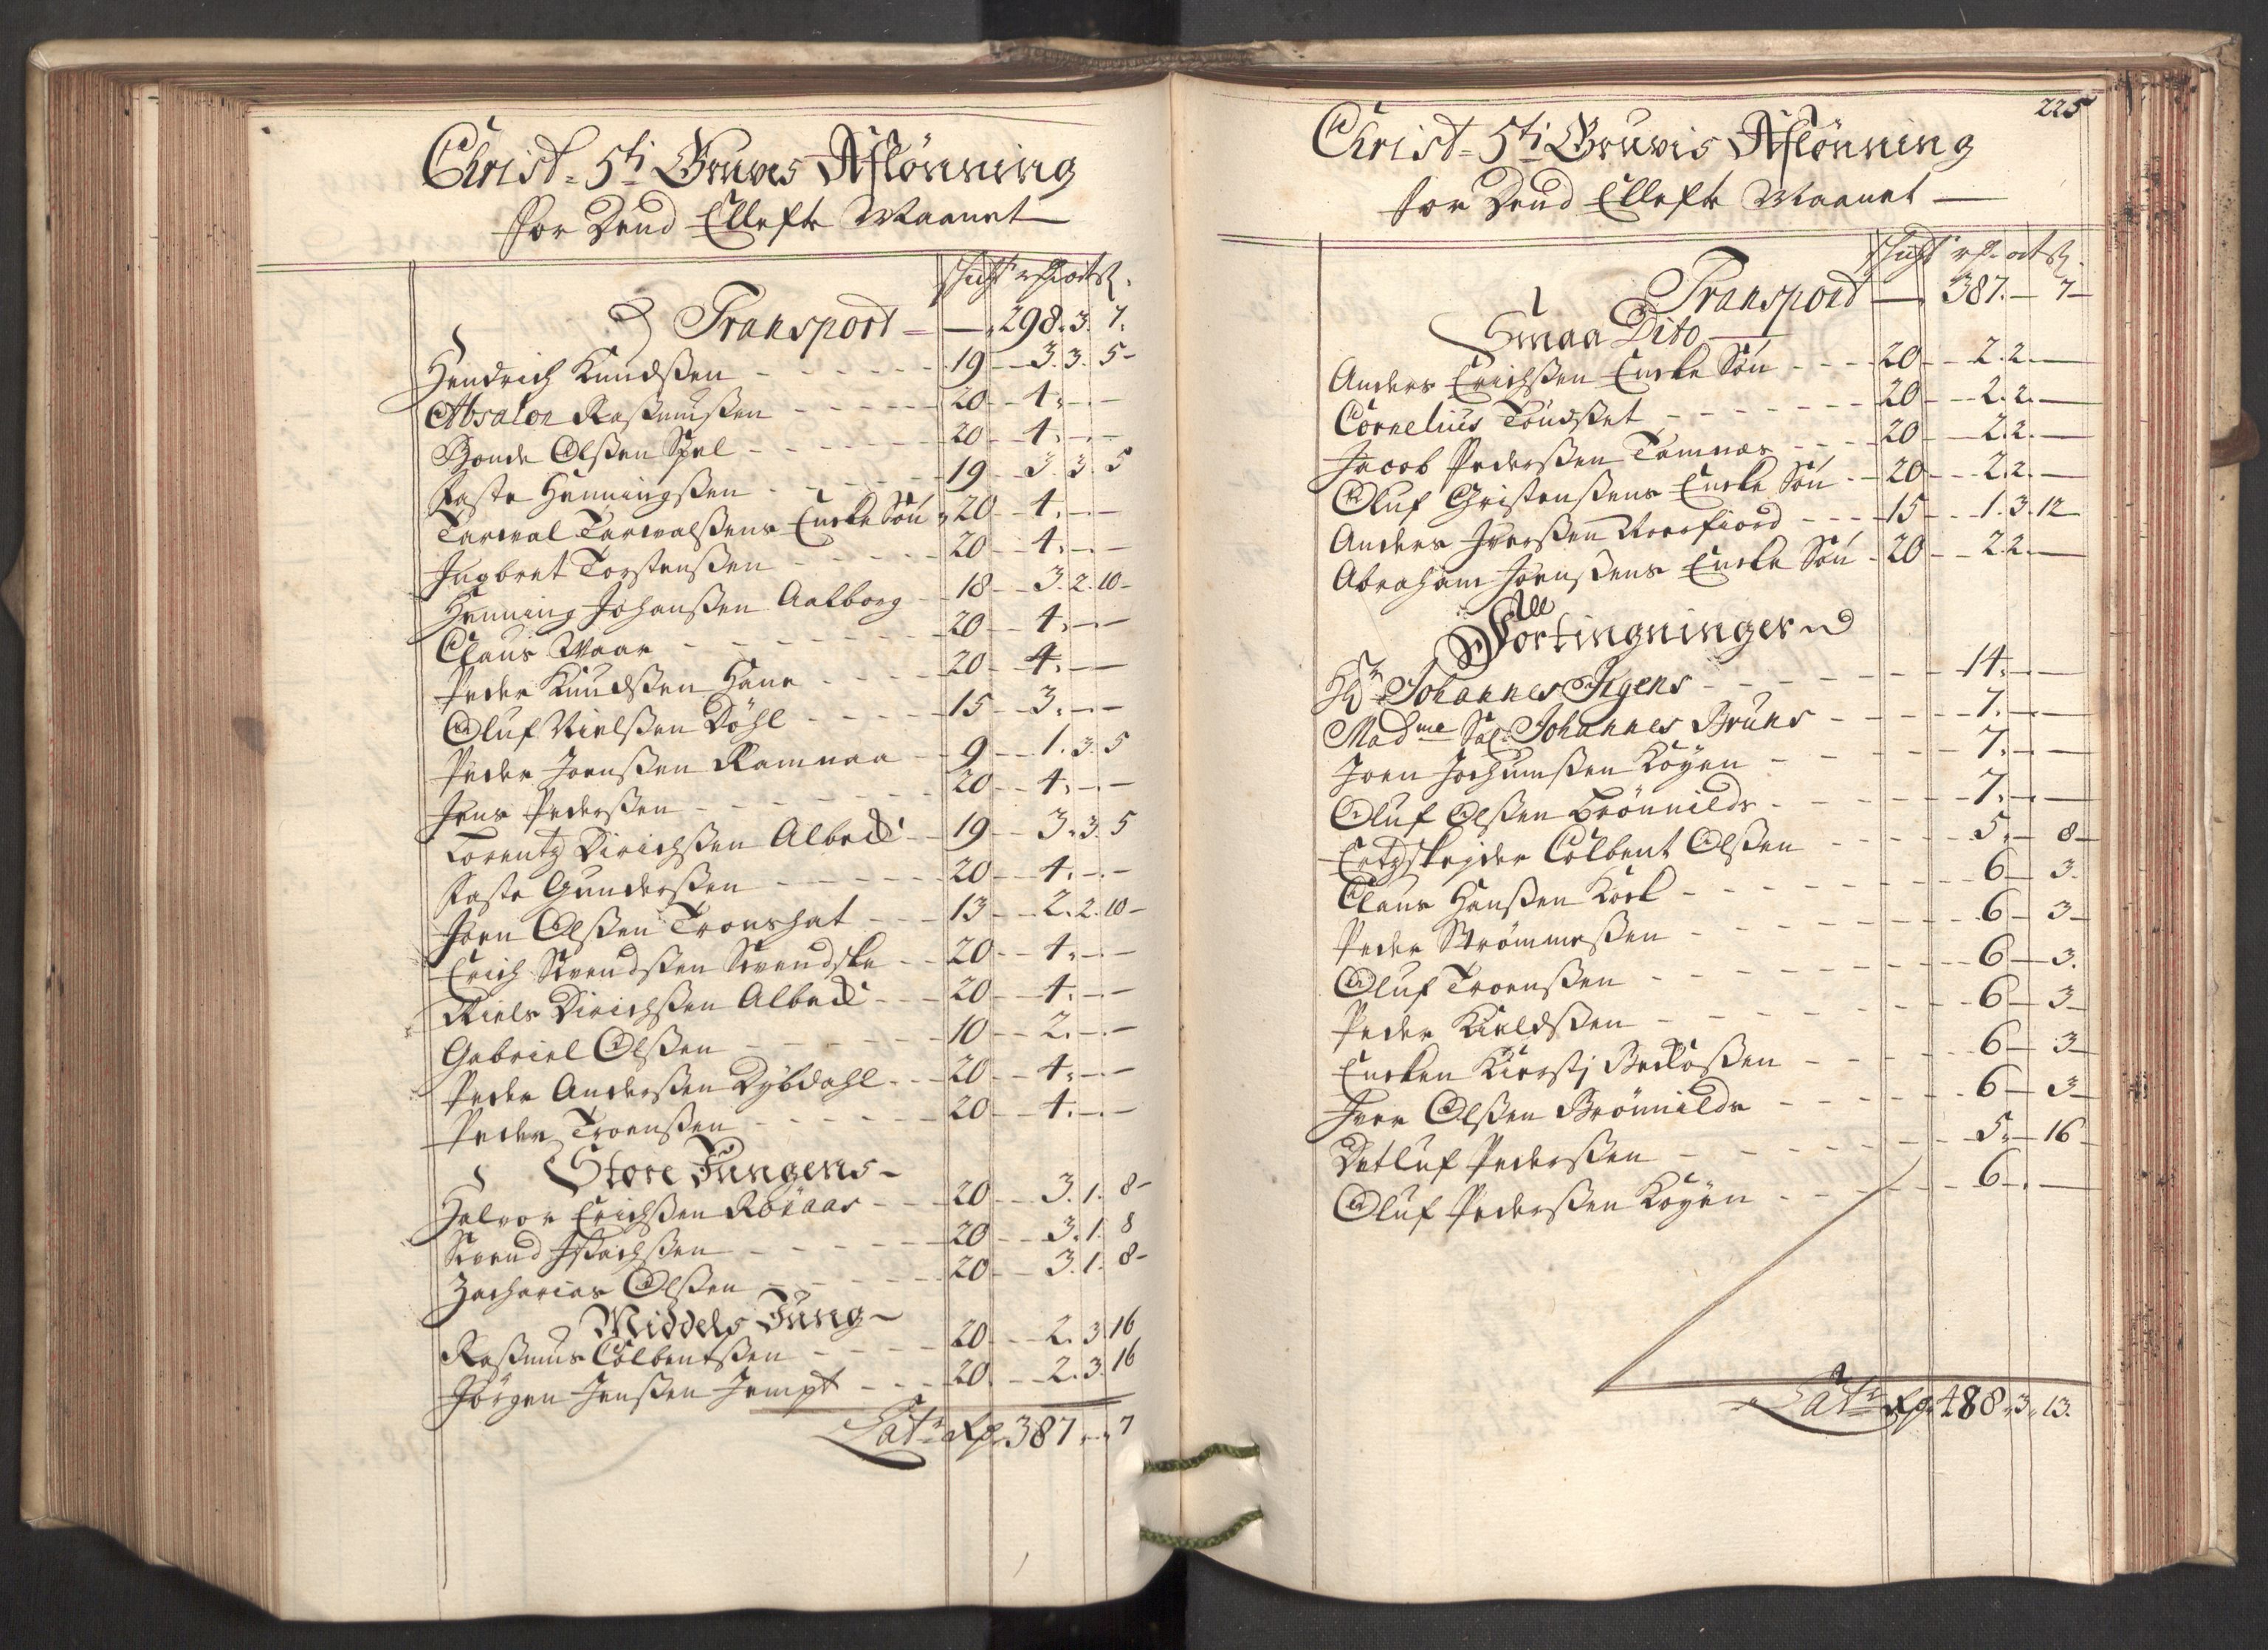 Christ. 5ti Gruves Aflönning
for Dend Ellefte Maanet
schicht rdr ort s.
Transport - 298. 3. 7.
Hendrich Knudsen - 19 - 3. 3. 5
Absalon Rasmusen - 20 - 4. -
Bonde Olsen Spel - 20 - 4. -
Faste Henningsen - 19 - 3. 3. 5
Tarval Tarvalsens Encke Sön 20 - 4. -
Ingbret Torstensen - 20 - 4. -
Henning Johansen Aalborg - 18 - 3. 2. 10
Claus Waar - 20 - 4. -
Peder Knudsen Hane - 20 - 4. -
Oluf Nielsen Döhl - 15 - 3. -
Peder Joensen Ramnaa - 9 - 1. 3. 5
Jens Pedersen - 20 - 4. -
Lorentz Dirichsen - 19 - 3. 3. 5
Faste Gundersen - 20 - 4. -
Joen Olsen Tronshat - 13 - 2. 2. 10
Erich Svendsen Svendske - 20 - 4. -
Niels Dirichsen - 20 - 4. -
Gabriel Olsen - 10 - 2. -
Peder Andersen Dybdahl - 20 - 4. -
Peder Troensen - 20 - 4. -
Store Jungens
Halvor Erichsen Röraas - 20 - 3. 1. 8
Svend Isachsen - 20 - 3. 1. 8
Zacharias Olsen - 20 - 3. 1. 8
Middels Jung
Rasmus Colbentsen - 20 - 2. 3. 16
Jörgen Jensen Jempt - 20 - 2. 3. 16
Lats Rdr 387. - 7
225
Christ. 5ti Gruvis Aflönning
for Dend Ellefte Maanet
schicht rdr ort s.
Transport - 387. - 7
Smaa Dito
Anders Erichsen Encke Sön - 20 - 2. 2. -
Cornelius Töndset - 20 - 2. 2. -
Jacob Pedersen Tamnes - 20 - 2. 2. -
Oluf Gristensens Encke Sön - 20 - 2. 2. -
Anders Iversen - 15 - 1. 3. 12
Abraham Joensens Encke Sön - 20 - 2. 2. -
Alle
Fortingninger
Hr Johannes Irgens - 14. -
Madme Sal. Johannes Bruns - 7. -
Joen Jochumsen Köyen - 7. -
Oluf Olsen Brönnilds - 7. -
Ertzskeyder Colbent Olsen - 5. - 8
Claus Hansen Kock - 6 - 3.
Peder Strömmesen - 6 - 3
Oluf Troensen - 6 - 3.
Peder Kieldsen - 6 - 3
Encken Kiersti - 6 - 3
Iver Olsen Brönnilds - 6 - 3
Detluf Pedersen - 5. - 16
Oluf Pedersen Köyen - 6. -
Lats Rdr 488. 3. 13.